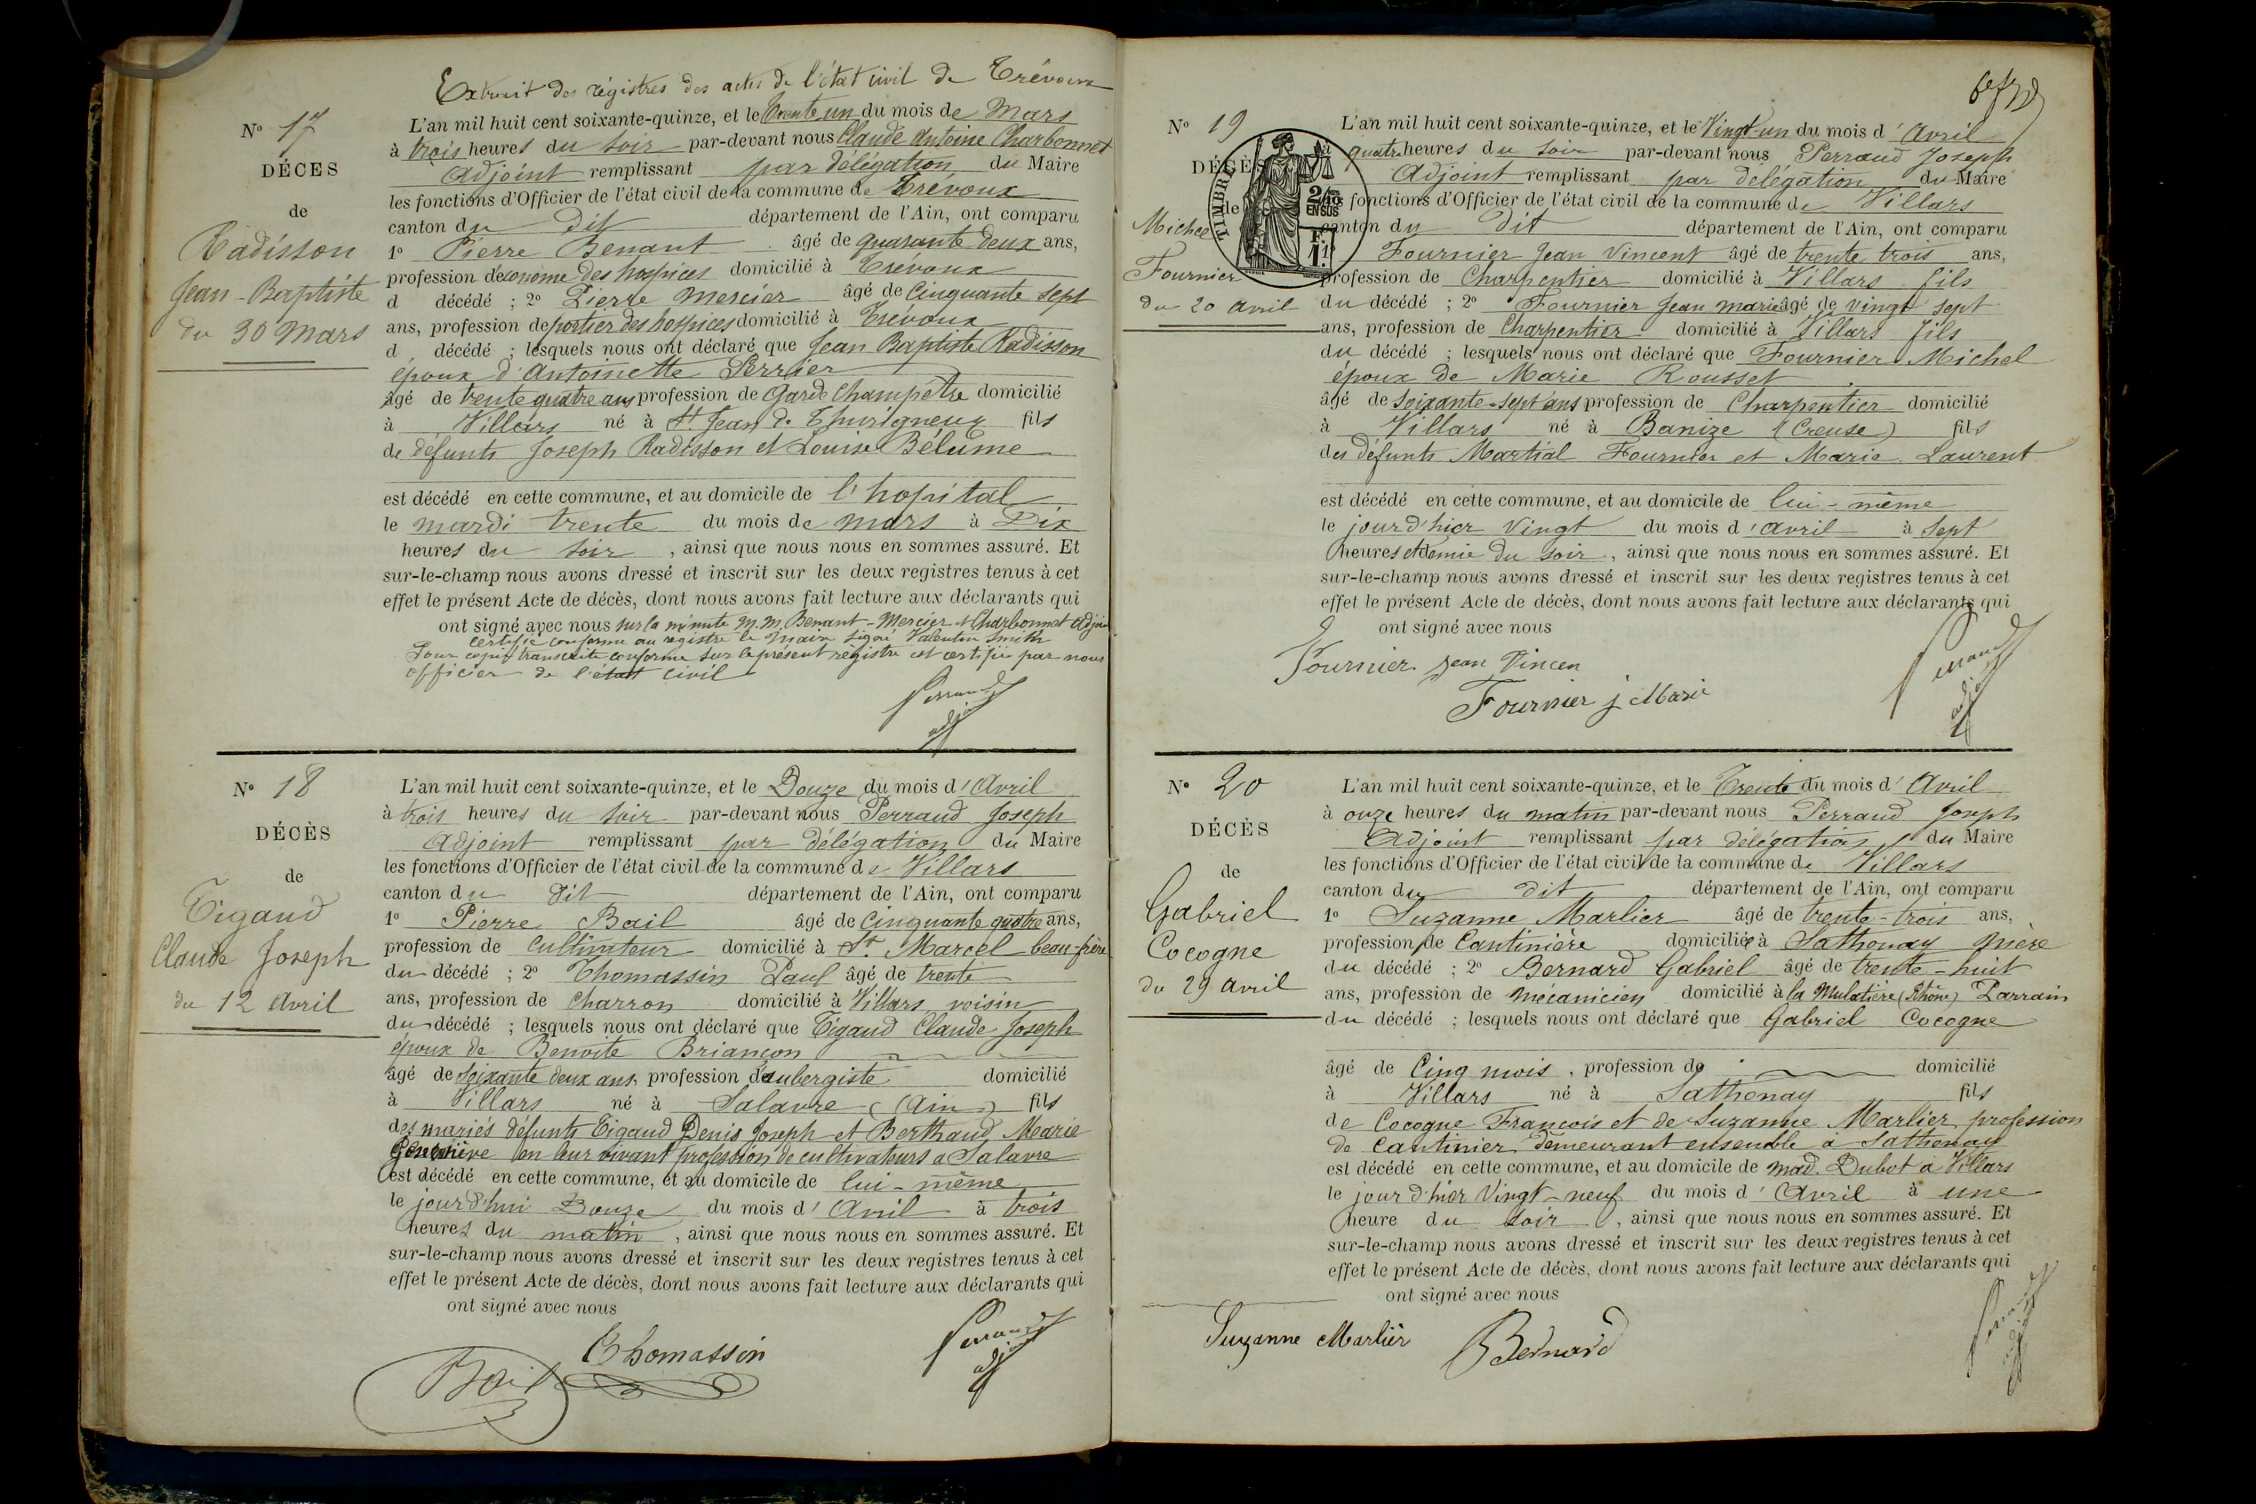 Extrait des régistres des actes de l'état civil de Trévoux
N° 17
DÉCES
de
Radisson
Jean-Baptiste
du 30 Mars
L'an mil huit cent soixante-quinze, et le trente un du mois de Mars
à trois heures du soir par-devant nous Claude Antoine Charbonnet
Adjoint remplissant par délégation du Maire
les fonctions d'Officier de l'état civil de la commune de Trévoux
canton du dit département de l'Ain, ont comparu
1° Pierre Benant âgé de quarante deux ans,
profession d'économe des hospices domicilié à Trévoux
d décédé ; 2° Pierre Mercier âgé de Cinquante sept
ans, profession de portier des hospices domicilié à Trévoux
d décédé ; lesquels nous ont déclaré que Jean Baptiste Radisson
époux d'Antoinette Perrier
âgé de trente quatre ans profession de Garde Champêtre domicilié
à Villars né à St Jean de Thurigneux fils
de défunts Joseph Radisson et Louise Bélume
est décédé en cette commune, et au domicile de l'hopital
le mardi trente du mois de mars à Dix
heures du soir , ainsi que nous nous en sommes assuré. Et
sur-le-champ nous avons dressé et inscrit sur les deux registres tenus à cet
effet le présent Acte de décès, dont nous avons fait lecture aux déclarants qui
ont signé avec nous sur la minute M.M. Benant - Mercier et Charbonnet adjoint
certifié conforme au registre le Maire signé Valentin Smith
Pour copie transcrite conforme sur le présent registre et certifié par nous
officier de l'état civil
Perraud
adj
N° 18
DÉCÈS
de
Tigaud
Claude Joseph
du 12 Avril
L'an mil huit cent soixante-quinze, et le Douze du mois d'Avril
à trois heures du soir par-devant nous Perraud Joseph
Adjoint remplissant par délégation du Maire
les fonctions d'Officier de l'état civil de la commune de Villars
canton du dit département de l'Ain, ont comparu
1° Pierre Bail âgé de Cinquante quatre ans,
profession de cultivateur domicilié à St. Marcel beau-frère
du décédé ; 2° Thomassin Paul âgé de trente
ans, profession de Charron domicilié à Villars voisin
du décédé ; lesquels nous ont déclaré que Tigaud Claude Joseph
époux de Benoite Briançon
âgé de soixante deux ans, profession d'aubergiste domicilié
à Villars né à Salavre (Ain) fils
des mariés défunts Tigaud Denis Joseph et Berthaud Marie
Geneviève en leur vivant profession de cultivateurs a Salavre
est décédé en cette commune, et au domicile de lui-même
le jourd'hui Douze du mois d'Avril à trois
heures du matin , ainsi que nous nous en sommes assuré. Et
sur-le-champ nous avons dressé et inscrit sur les deux registres tenus à cet
effet le présent Acte de décès, dont nous avons fait lecture aux déclarants qui
ont signé avec nous
Bail
Thomassin
Perraud
adj
N° 19
DÉCÈS
de
Michel
Fournier
du 20 Avril
TIMBRE
2/10
EN SUS
L'an mil huit cent soixante-quinze, et le Vingt-un du mois d'Avril
à quatre heures du soir par-devant nous Perraud Joseph
Adjoint remplissant par délégation du Maire
fonctions d'Officier de l'état civil de la commune de Villars
canton du dit département de l'Ain, ont comparu
Fournier Jean Vincent âgé de trente trois ans,
profession de Charpentier domicilié à Villars fils
du décédé ; 2° Fournier Jean Marie âgé de vingt sept
ans, profession de Charpentier domicilié à Villars fils
du décédé ; lesquels nous ont déclaré que Fournier Michel
époux de Marie Rousset
âgé de soixante-sept ans profession de Charpentier domicilié
à Villars né à Banize (Creuse) fils
des défunts Martial Fournier et Marie Laurent
est décédé en cette commune, et au domicile de lui-même
le jour d'hier Vingt du mois d'avril à sept
heures et demie du soir , ainsi que nous nous en sommes assuré. Et
sur-le-champ nous avons dressé et inscrit sur les deux registres tenus à cet
effet le présent Acte de décès, dont nous avons fait lecture aux déclarants qui
ont signé avec nous
Fournier Jean Vincen
Fournier j Marie
Perraud
adj
N° 20
DÉCÈS
de
Gabriel
Cocogne
du 29 avril
L'an mil huit cent soixante-quinze, et le Trente du mois d'Avril
à onze heures du matin par-devant nous Perraud Joseph
Adjoint remplissant par délégation du Maire
les fonctions d'Officier de l'état civil de la commune de Villars
canton du dit département de l'Ain, ont comparu
1° Suzanne Marlier âgé de trente-trois ans,
profession de Cantinière domiciliée à Sathonay Mère
du décédé ; 2° Bernard Gabriel âgé de trente-huit
ans, profession de mécanicien domicilié à la Mulatière (Rhône) Parrain
du décédé ; lesquels nous ont déclaré que Gabriel Cocogne
âgé de Cinq mois , profession de domicilié
à Villars né à Sathonay fils
de Cocogne François et de Suzanne Marlier, profession
de cantinier demeurant ensemble a Sathonay
est décédé en cette commune, et au domicile de mad. Dubot à Villars
le jour d'hier Vingt-neuf du mois d'Avril à une
heure du soir , ainsi que nous nous en sommes assuré. Et
sur-le-champ nous avons dressé et inscrit sur les deux registres tenus à cet
effet le présent Acte de décès, dont nous avons fait lecture aux déclarants qui
ont signé avec nous
Suzanne Marlier
Bernard
Perraud
adj